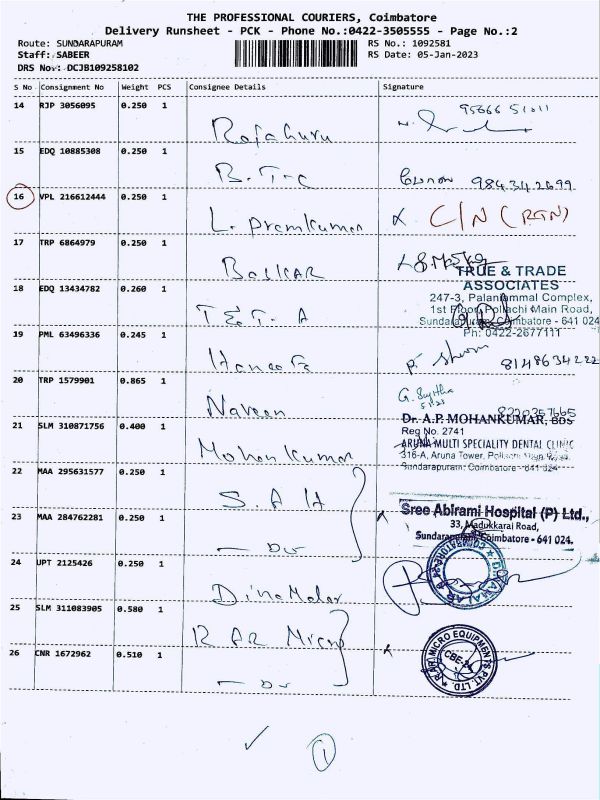 THE PROFESSIONAL COURIERS, Coimbatore
Delivery Runsheet - PCK - Phone No.:0422-3505555 - Page No.:2
Route: SUNDARAPURAM
Staff: SABEER
DRS No.: DCJB109258102
RS No.: 1092581
RS Date: 05-Jan-2023
S No Consignment No Weight PCS Consignee Details Signature
14 RJP 3056095 0.250 1 Rajaguru 95666 51011
15 EDQ 10885308 0.250 1 B.T-C 984342699
16 VPL 216612444 0.250 1 L. Premkumar C/N (RTN)
17 TRP 6864979 0.250 1 BasKAR
18 EDQ 13434782 0.260 1 T & T - A
TRUE & TRADE
ASSOCIATES
247-3, Palaniammal Complex,
1st Floor, Pollachi Main Road,
Sundarapuram, Coimbatore - 641 024
Ph: 0422-2677111
19 PML 63496336 0.245 1 Haneefa 8148634222
20 TRP 1579901 0.865 1 Naveen G. Sujitha
8220357665
21 SLM 310871756 0.400 1 Mohan Kumar
Dr. A.P. MOHANKUMAR, BDS
Reg No. 2741
ARUNA MULTI SPECIALITY DENTAL CLINIC
316-A, Aruna Tower, Pollachi Main Road,
Sundarapuram, Coimbatore - 641 024
22 MAA 295631577 0.250 1 S.A H
23 MAA 284762281 0.250 1 — Do
Sree Abirami Hospital (P) Ltd.,
33, Madukkarai Road,
Sundarapuram, Coimbatore - 641 024.
24 UPT 2125426 0.250 1 Dinamalar
DINAMALAR COIMBATORE
25 SLM 311083905 0.580 1 R AR Micro
26 CNR 1672962 0.510 1 — Do
MICRO EQUIPMENTS PVT. LTD.
CBE-24
1